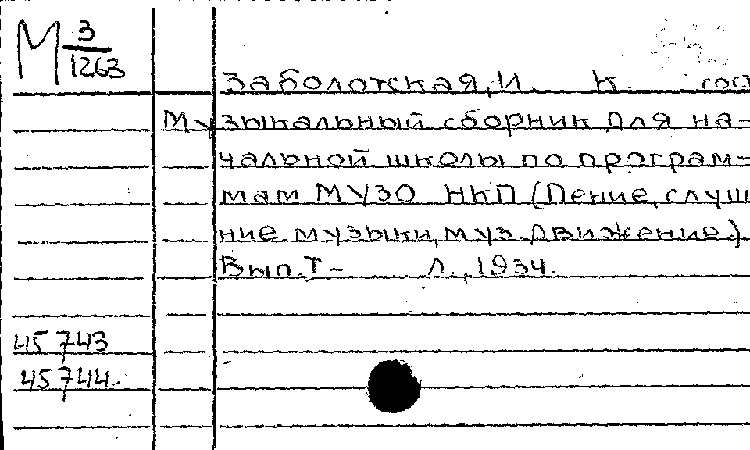 М 3/1263
Заболотская, И. К. сост
Музыкальный сборник для на-
чальной школы по програм-
мам МУЗО НКП (Пение, слуш
ние музыки, муз. движение.)
Вып. I - Л., 1934.
45743
45744.